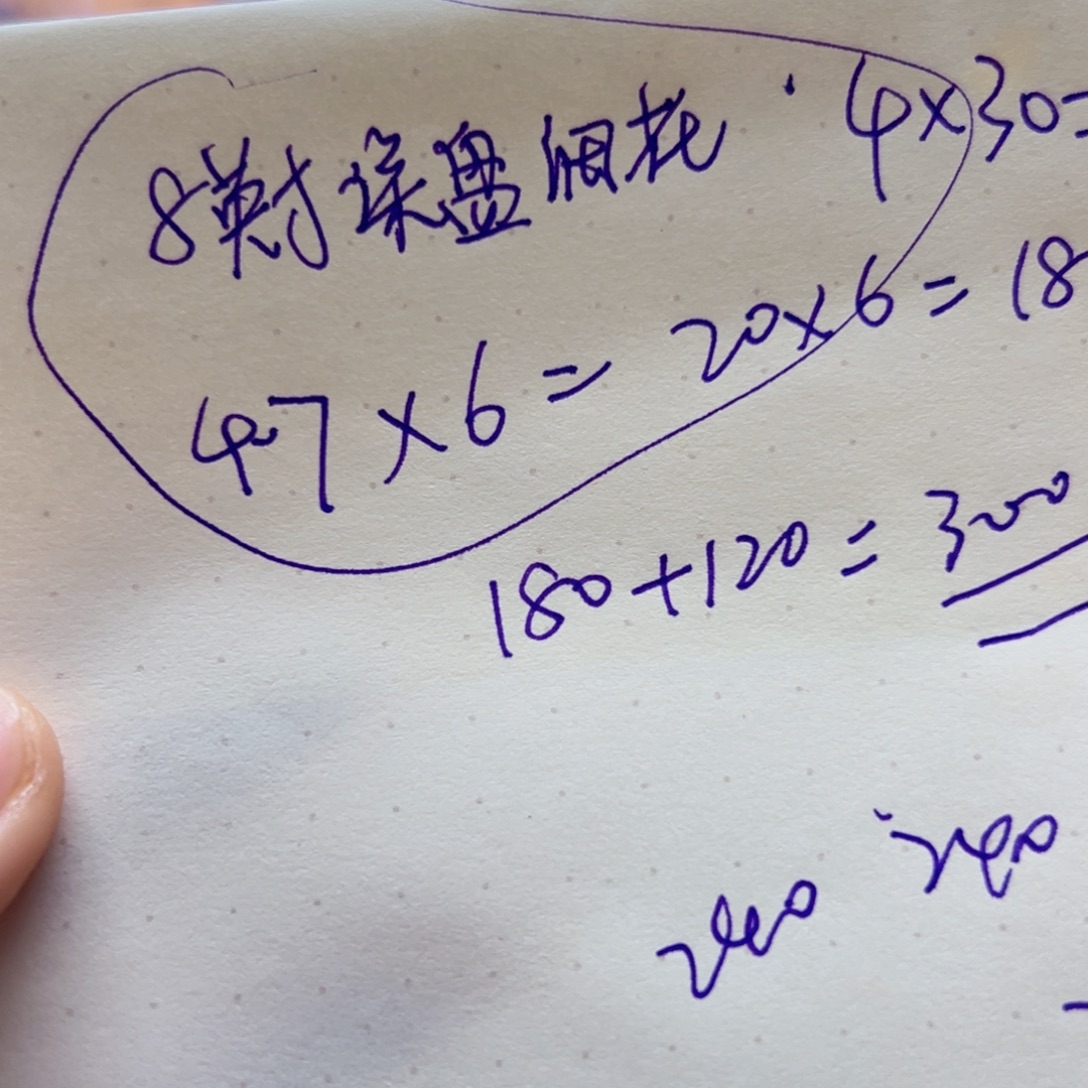 8英寸深盘烟花 4×30=
47×6= 20×6=18
180+120=300
240 240